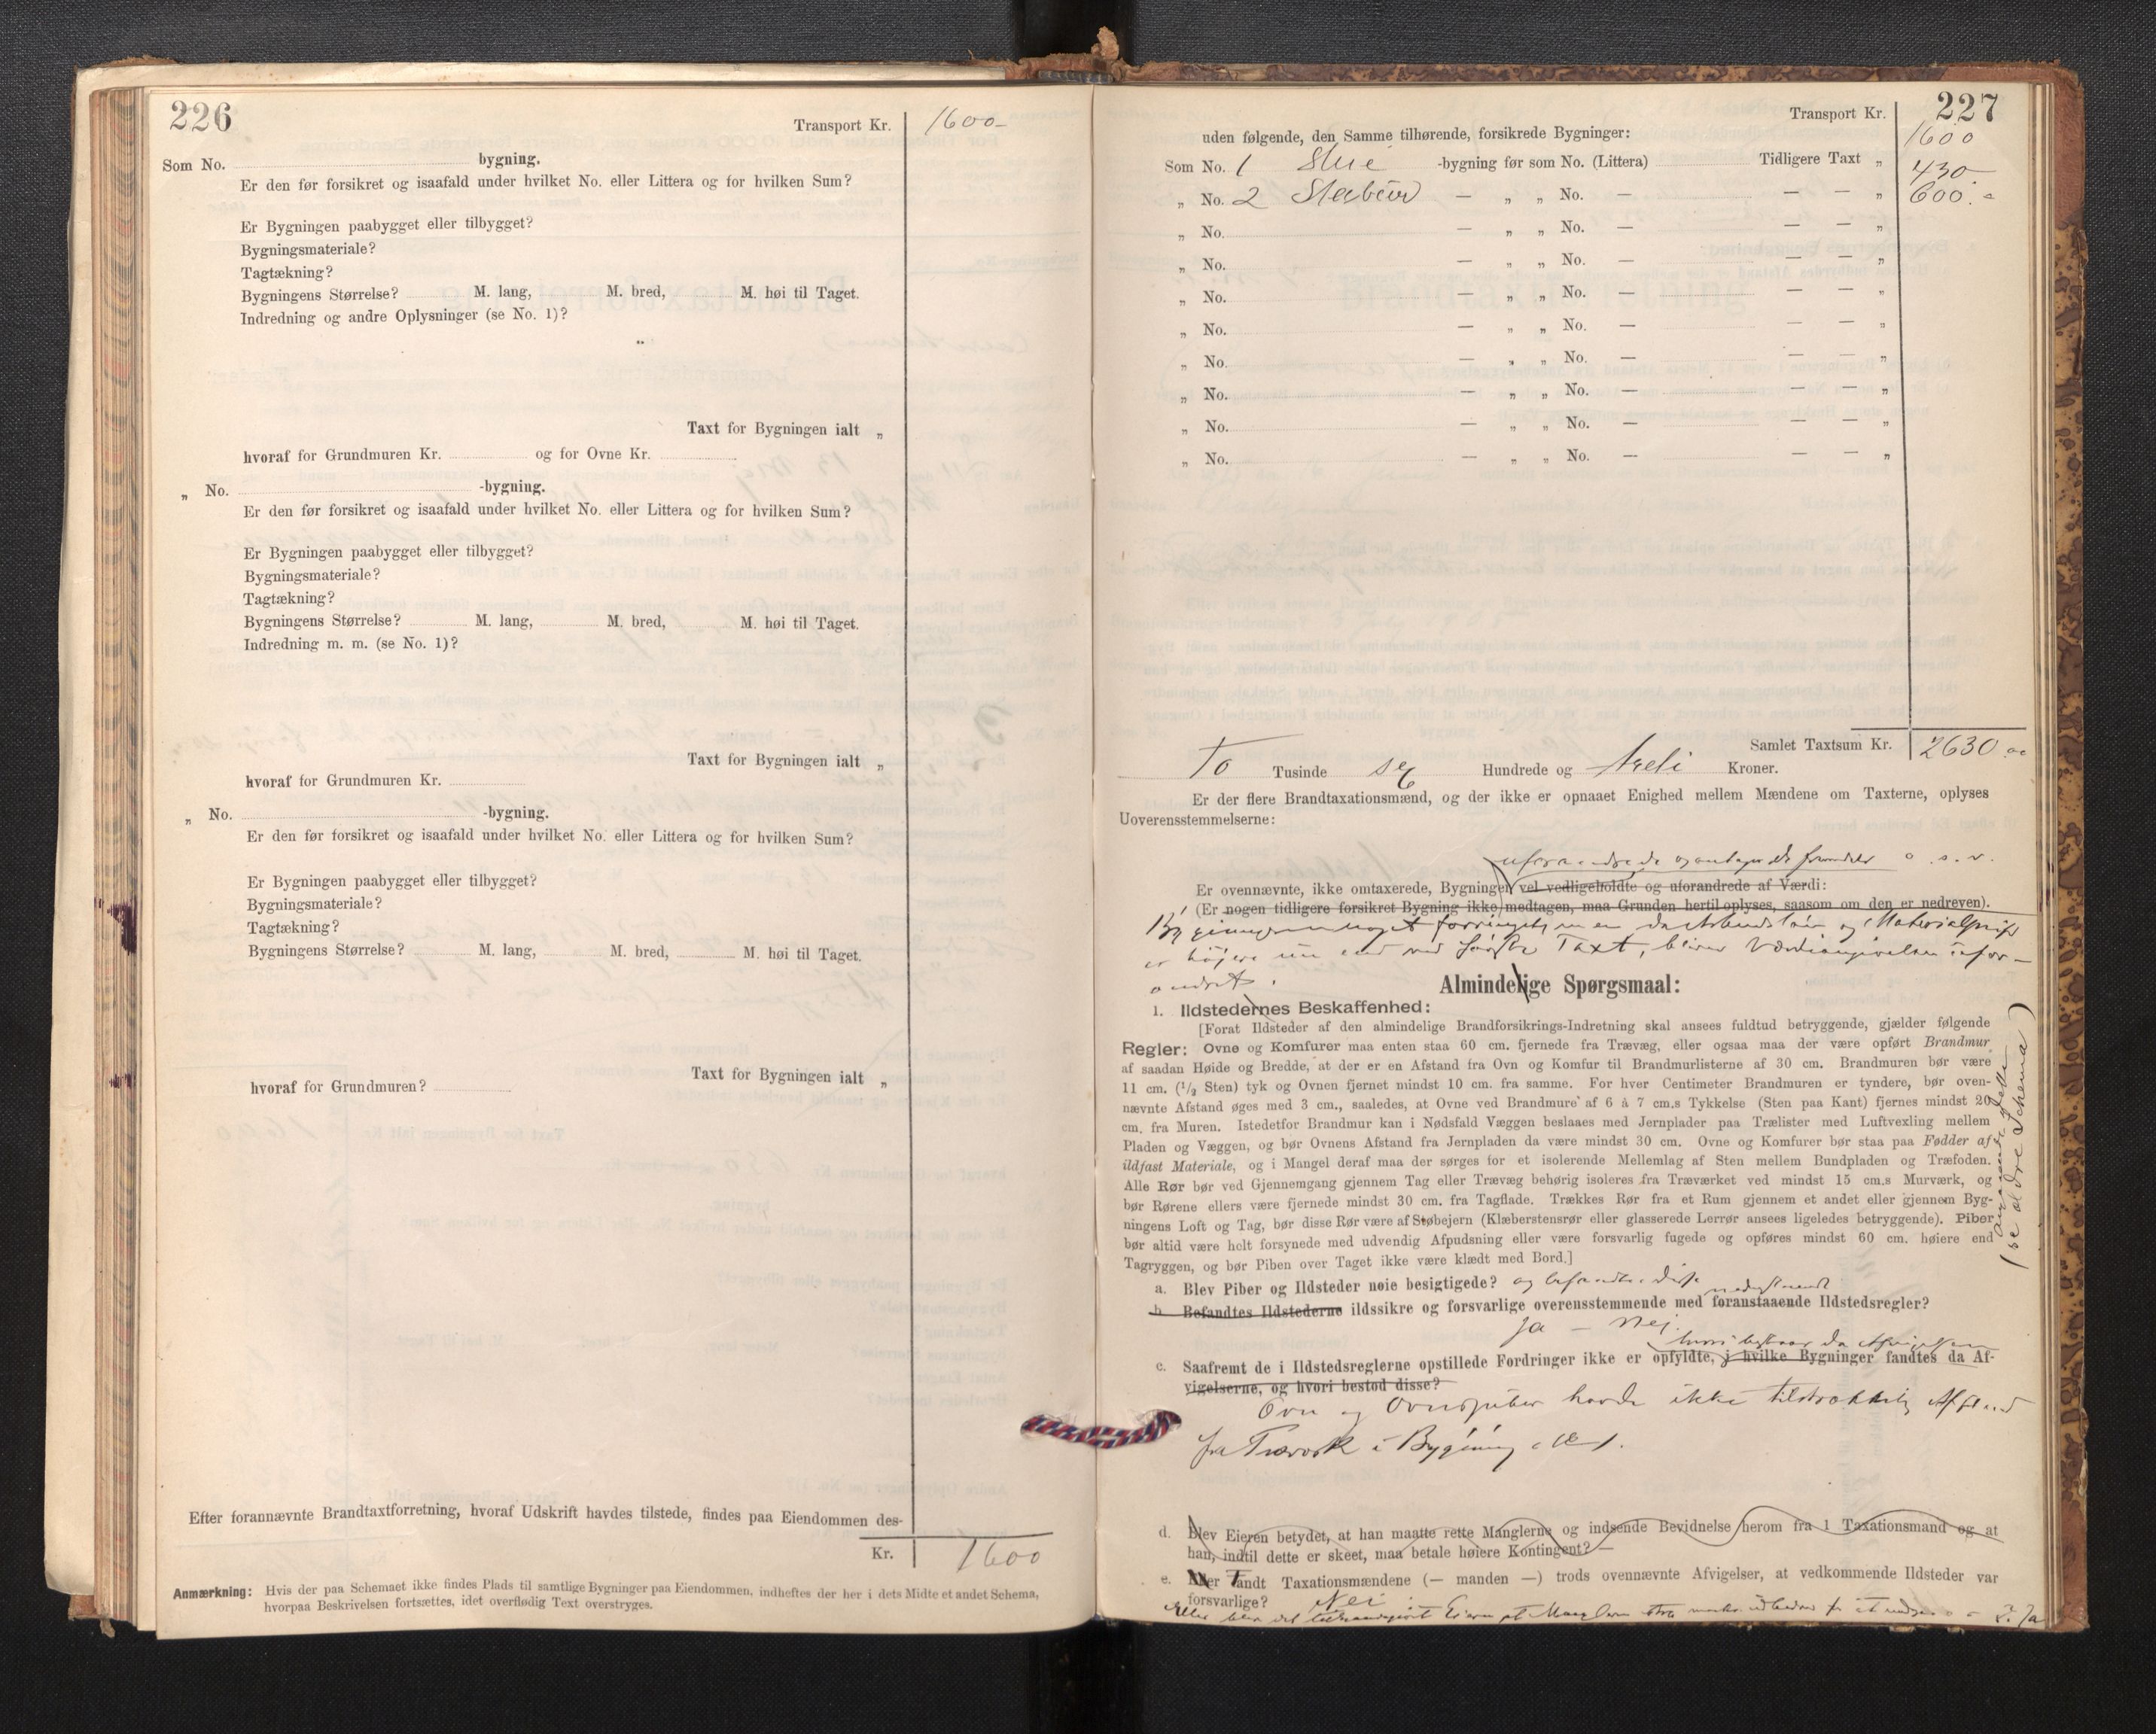 226
Transport Kr. 1600-
Som No. bygning.
Er den før forsikret og isaafald under hvilket No. eller Littera og for hvilken Sum?
Er Bygningen paabygget eller tilbygget?
Bygningsmateriale?
Tagtækning?
Bygningens Størrelse? M. lang, M. bred, M. høi til Taget.
Indredning og andre Oplysninger (se No. 1)?
Taxt for Bygningen ialt „
hvoraf for Grundmuren Kr. og for Ovne Kr.
„ No. -bygning.
Er den før forsikret og isaafald under hvilket No. eller Littera og for hvilken Sum?
Er Bygningen paabygget eller tilbygget?
Bygningsmateriale?
Tagtækning?
Bygningens Størrelse? M. lang, M. bred, M. høi til Taget.
Indredning m. m. (se No. 1)?
Taxt for Bygningen ialt „
hvoraf for Grundmuren Kr.
„ No. -bygning.
Er den før forsikret og isaafald under hvilket No. eller Littera og for hvilken Sum?
Er Bygningen paabygget eller tilbygget?
Bygningsmateriale?
Tagtækning?
Bygningens Størrelse? M. lang, M. bred, M. høi til Taget.
Taxt for Bygningen ialt „
hvoraf for Grundmuren?
Efter forannævnte Brandtaxtforretning, hvoraf Udskrift havdes tilstede, findes paa Eiendommen des-
Kr. 1600
Anmærkning: Hvis der paa Schemaet ikke findes Plads til samtlige Bygninger paa Eiendommen, indheftes der her i dets Midte et andet Schema,
hvorpaa Beskrivelsen fortsættes, idet overflødig Text overstryges.
227
Transport Kr. 1600
uden følgende, den Samme tilhørende, forsikrede Bygninger:
Som No. 1 Stue -bygning før som No. (Littera) Tidligere Taxt „ 430
„ No. 2 Stabur — „ „ No. — — — „ 600.
„ No. — „ „ No. — — — „
„ No. — „ „ No. — — — „
„ No. — „ „ No. — — — „
„ No. — „ „ No. — — — „
„ No. — „ „ No. — — — „
„ No. — „ „ No. — — — „
„ No. — „ „ No. — — — „
„ No. — „ „ No. — — — „
Samlet Taxtsum Kr. 2630.00
To Tusinde sex Hundrede og treti Kroner.
Er der flere Brandtaxationsmænd, og der ikke er opnaaet Enighed mellem Mændene om Taxterne, oplyses
Uoverensstemmelserne:
uforandrede og antages de fremdeles o. s. v.
Er ovennævnte, ikke omtaxerede, Bygninger vel vedligeholdte og uforandrede af Værdi:
(Er nogen tidligere forsikret Bygning ikke medtagen, maa Grunden hertil oplyses, saasom om den er nedreven).
Bygningerne noget forringet, men da Arbeidsløn og Materialpris
er høiere nu end ved første Taxt, bliver Værdiangivelsen ufor-
andret.
Almindelige Spørgsmaal:
1. Ildstedernes Beskaffenhed:
[Forat Ildsteder af den almindelige Brandforsikrings-Indretning skal ansees fuldtud betryggende, gjælder følgende
Regler: Ovne og Komfurer maa enten staa 60 cm. fjernede fra Trævæg, eller ogsaa maa der være opført Brandmur
af saadan Høide og Bredde, at der er en Afstand fra Ovn og Komfur til Brandmurlisterne af 30 cm. Brandmuren bør være
11 cm. (1/2 Sten) tyk og Ovnen fjernet mindst 10 cm. fra samme. For hver Centimeter Brandmuren er tyndere, bør oven-
nævnte Afstand øges med 3 cm., saaledes, at Ovne ved Brandmure af 6 à 7 cm.s Tykkelse (Sten paa Kant) fjernes mindst 20
cm. fra Muren. Istedetfor Brandmur kan i Nødsfald Væggen beslaaes med Jernplader paa Trælister med Luftvexling mellem
Pladen og Væggen, og bør Ovnens Afstand fra Jernpladen da være mindst 30 cm. Ovne og Komfurer bør staa paa Fødder af
ildfast Materiale, og i Mangel deraf maa der sørges for et isolerende Mellemlag af Sten mellem Bundpladen og Træfoden.
Alle Rør bør ved Gjennemgang gjennem Tag eller Trævæg behørig isoleres fra Træværket ved mindst 15 cm.s Murværk, og
bør Rørene ellers være fjernede mindst 30 cm. fra Tagflade. Trækkes Rør fra et Rum gjennem et andet eller gjennem Byg-
ningens Loft og Tag, bør disse Rør være af Støbejern (Klæberstensrør eller glasserede Lerrør ansees ligeledes betryggende). Piber
bør altid være helt forsynede med udvendig Afpudsning eller være forsvarlig fugede og opføres mindst 60 cm. høiere end
Tagryggen, og bør Piben over Taget ikke være klædt med Bord.]
(se ældre Schema)
a. Blev Piber og Ildsteder nøie besigtigede? og befandtes disse
b. Befandtes Ildstederne ildssikre og forsvarlige overensstemmende med foranstaaende Ildstedsregler?
Ja – Nej.
hvori bestaar da Afvigelsen
c. Saafremt de i Ildstedsreglerne opstillede Fordringer ikke er opfyldte, i hvilke Bygninger fandtes da Af-
vigelserne, og hvori bestod disse?
Ovn og Ovnspiber havde ikke tilstrækkelig Afstand
fra Træverk i Bygning No 1.
d. Blev Eieren betydet, at han maatte rette Manglerne og indsende Bevidnelse herom fra 1 Taxationsmand og at
han, indtil dette er skeet, maa betale høiere Kontingent? —
e. Eller fandt Taxationsmændene (— manden —) trods ovennævnte Afvigelser, at vedkommende Ildsteder var
forsvarlige? Nei
Eller blev det Eieren at Manglerne ? Ja